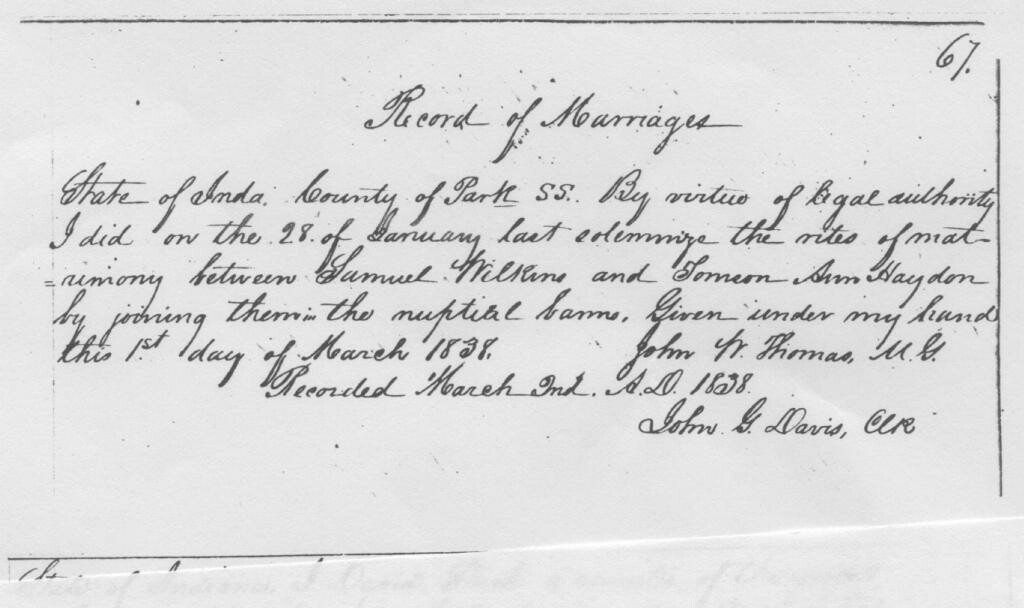 67.
Record of Marriages
State of Inda. County of Park SS. By virtue of legal authority
I did on the 28. of January last solemnize the rites of mat-
=rimony between Samuel Wilkins and Tomson Ann Haydon
by joining them in the nuptial banns. Given under my hand
this 1st day of March 1838. John W. Thomas, M.G.
Recorded March 2nd. A.D. 1838.
John G. Davis, Clk
State of Indiana, I David